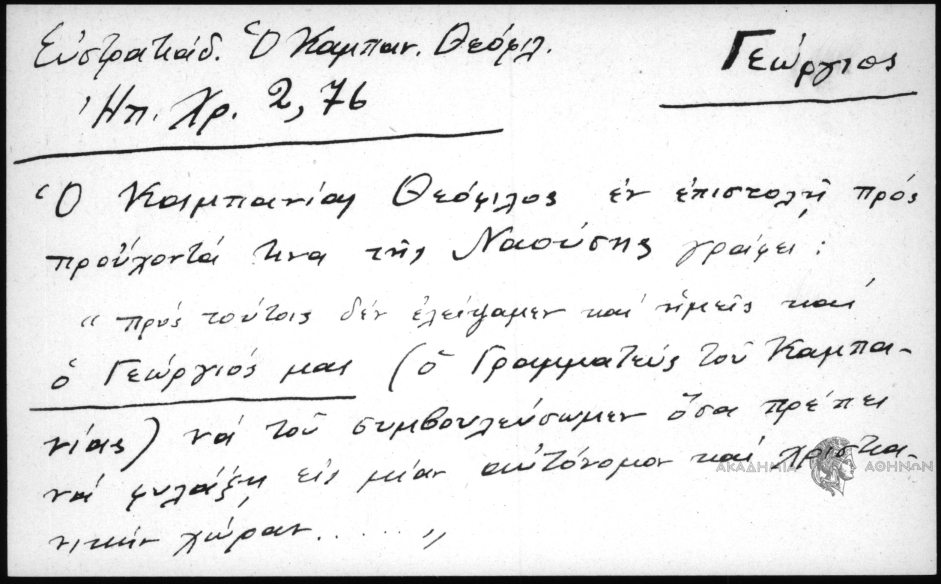 Εὐστρατιάδ. Ὁ Καμπαν. Θεόφιλ.
Γεώργιος
Ἠπ. Χρ. 2, 76
Ὁ Καμπανίας Θεόφιλος ἐν ἐπιστολῇ πρός
προὔχοντά τινα τῆς Ναούσης γράφει:
"πρός τούτοις δέν ἐλείψαμεν καί ἡμεῖς καί
ὁ Γεώργιός μας (ὁ Γραμματεύς τοῦ Καμπα-
νίας) νά τοῦ συμβουλεύσωμεν ὅσα πρέπει
νά φυλάξῃ εἰς μίαν αὐτόνομον καί χριστια-
νικήν χώραν......"
ΑΚΑΔΗΜΙΑ ΑΘΗΝΩΝ